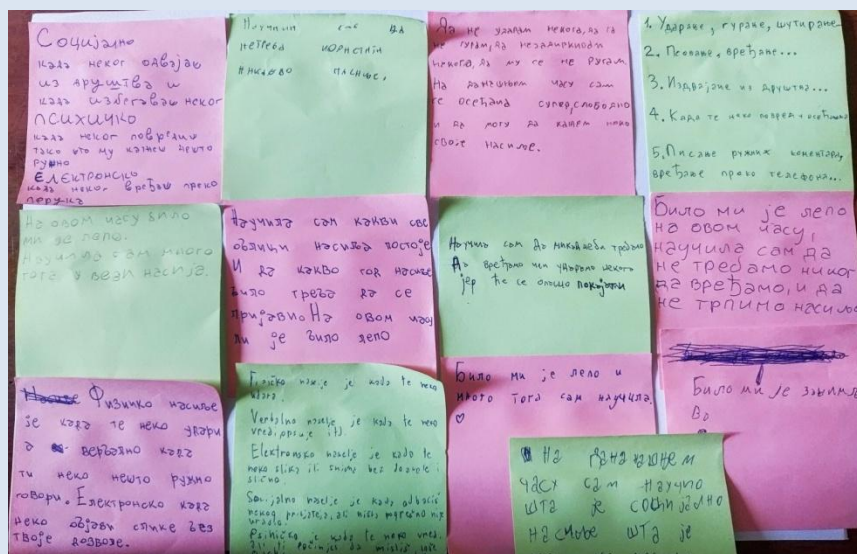 Социјално
када неког одвајаш
из друштва и
када избегаваш неког
ПСИХИЧКО
када неког повредиш
тако што му кажеш нешто
ружно
ЕЛЕКТРОНСКО
када неког вређаш преко
порука
Научили смо да
нетреба користити
никакво насиље.
Да не ударам некога, да га
не гурам, да незадиркиодм
некога, да му се не ругам.
На данашњем часу сам
се осећала супер, слободно
и да могу да кажем неко
своје насиље.
1. Ударање, гурање, шутирање
2. Псовање, вређање...
3. Издвајање из друштва...
4. Када те неко повреди
5. Писање ружних коментара,
вређање преко телефона...
На овом часу било
ми је лепо.
Научила сам много
тога у вези насиља.
Научила сам какви све
облици насиља постоје
И да какво год насиље
било треба да се
пријави. На овом часу
ми је било лепо
Научила сам да никад неби требало
Да вређамо или ударамо некога
јер ће се опшо покајати
Било ми је лепо
на овом часу,
научила сам да
не требамо никог
да вређамо, и да
не трпимо насиље
Физичко насиље
је када те неко удари
а вербално када
ти неко нешто ружно
говори. Електронско када
неко објави слике без
твоје дозволе.
Fizičko nasilje je kada te neko
udara.
Verbalno nasilje je kada te neko
vredja, psuje itd.
Elektronsko nasilje je kada te
neko slika ili snima bez dozvole i
slično.
Socijalno nasilje je kada odbaciš
nekog prijatelja, ali ništa
Psihičko je kada te neko vređa
Било ми је лепо и
много тога сам научила.
♡
Било ми је
На данашњем
часу сам научио
шта је социјално
насиље шта је